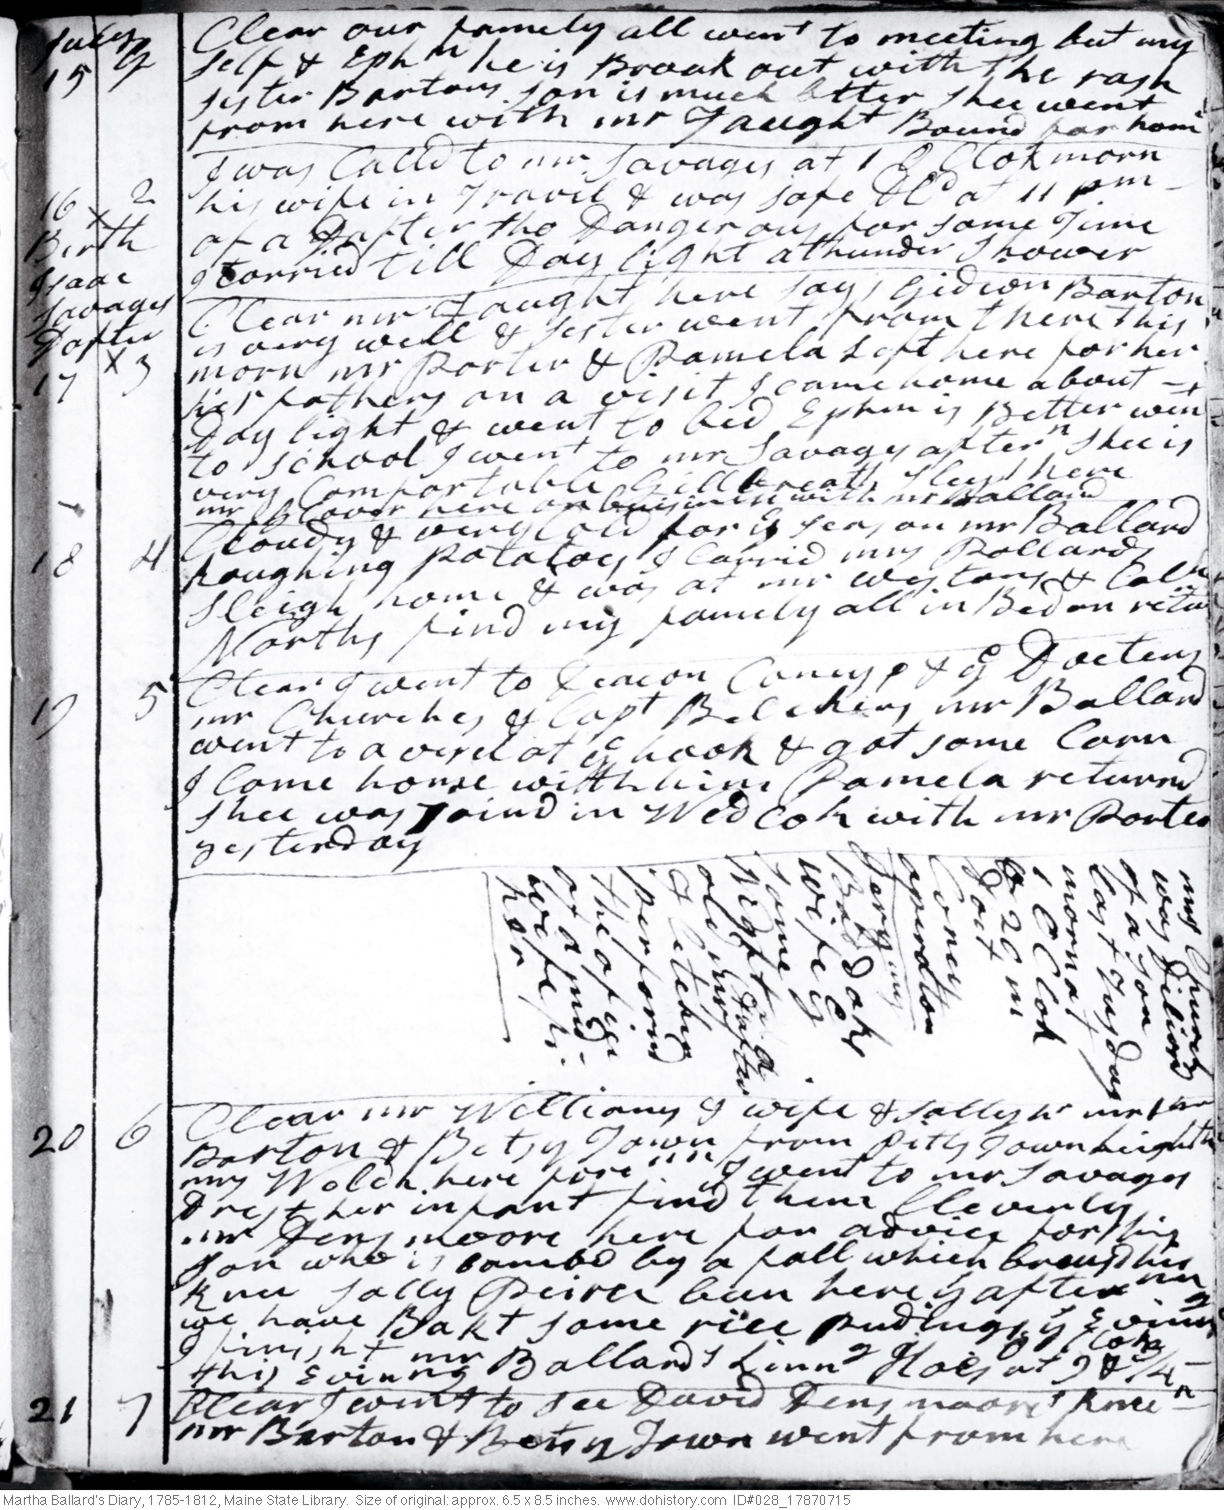 July g
15
Clear our famely all went to meeting but my
self & Ephm he is Broak out with the rash
sister Bartons son is much better shee went
from here with mr Faught Bound for home
16 2
x
Birth
Isaac
Savages
Dafter
I was Calld to mr Savages at 1 O Clok morn
his wife in Travil & was safe DLd at 11 pm
of a Dafter tho Dangerous for some Time
I tarried till Day light a thunder shower
17 x 3
Clear mr Faught here says Gideon Barton
is very well & sister went from there this
morn mr Porter & Pamela sett here for her
his fathers on a visit I came home about
Day light & went to bed Ephm is Better went
to school I went to mr Savages aftern shee is
very Comfortable Gillbreath sleeps here
mr here on business with mr Ballard
18 4
Cloudy & very Cold for ye season mr Ballard
houghing potatoes I Carried mrs Pollards
sleigh home & was at mr Westons & Coln
Norths find my famely all in Bed on return
19 5
Clear I went to Deacon Coneys & ye Doctens
mr Churches & Capt mr Ballard
went to a vesel at ye hook & got some Corn
I Come home with him Pamela returnd
shee was Joind in Wedlok with mr Porter
yesterday
mrs Church
was Dilivrd
of a son
last Tusday
morn at
1 O Clok
& 20 m
Doct
Coney
operator
Jery
wife
some
old Dafter
performd
the ofice
of a mid
wife for
her
20 6
Clear mr Williams & wife & sally
Barton & Betsy Town from Pitts Town
mrs Welch here fore nn I went to mr Savages
Drest her infant find them Cleverly
mr Densmoore here for advice for his
son who is by a fall which his
knee sally Peirce been here ye after nn
we have Bakt some rice Pudings ye Evinng
I finisht mr Ballards Linng Hoes at
this Evinng
21 7
Clear I went to see David Densmoors knee
mr Barton & Betsy Town went from here
Martha Ballard's Diary, 1785-1812, Maine State Library. Size of original: approx. 6.5 x 8.5 inches. www.dohistory.com ID#028_17870715